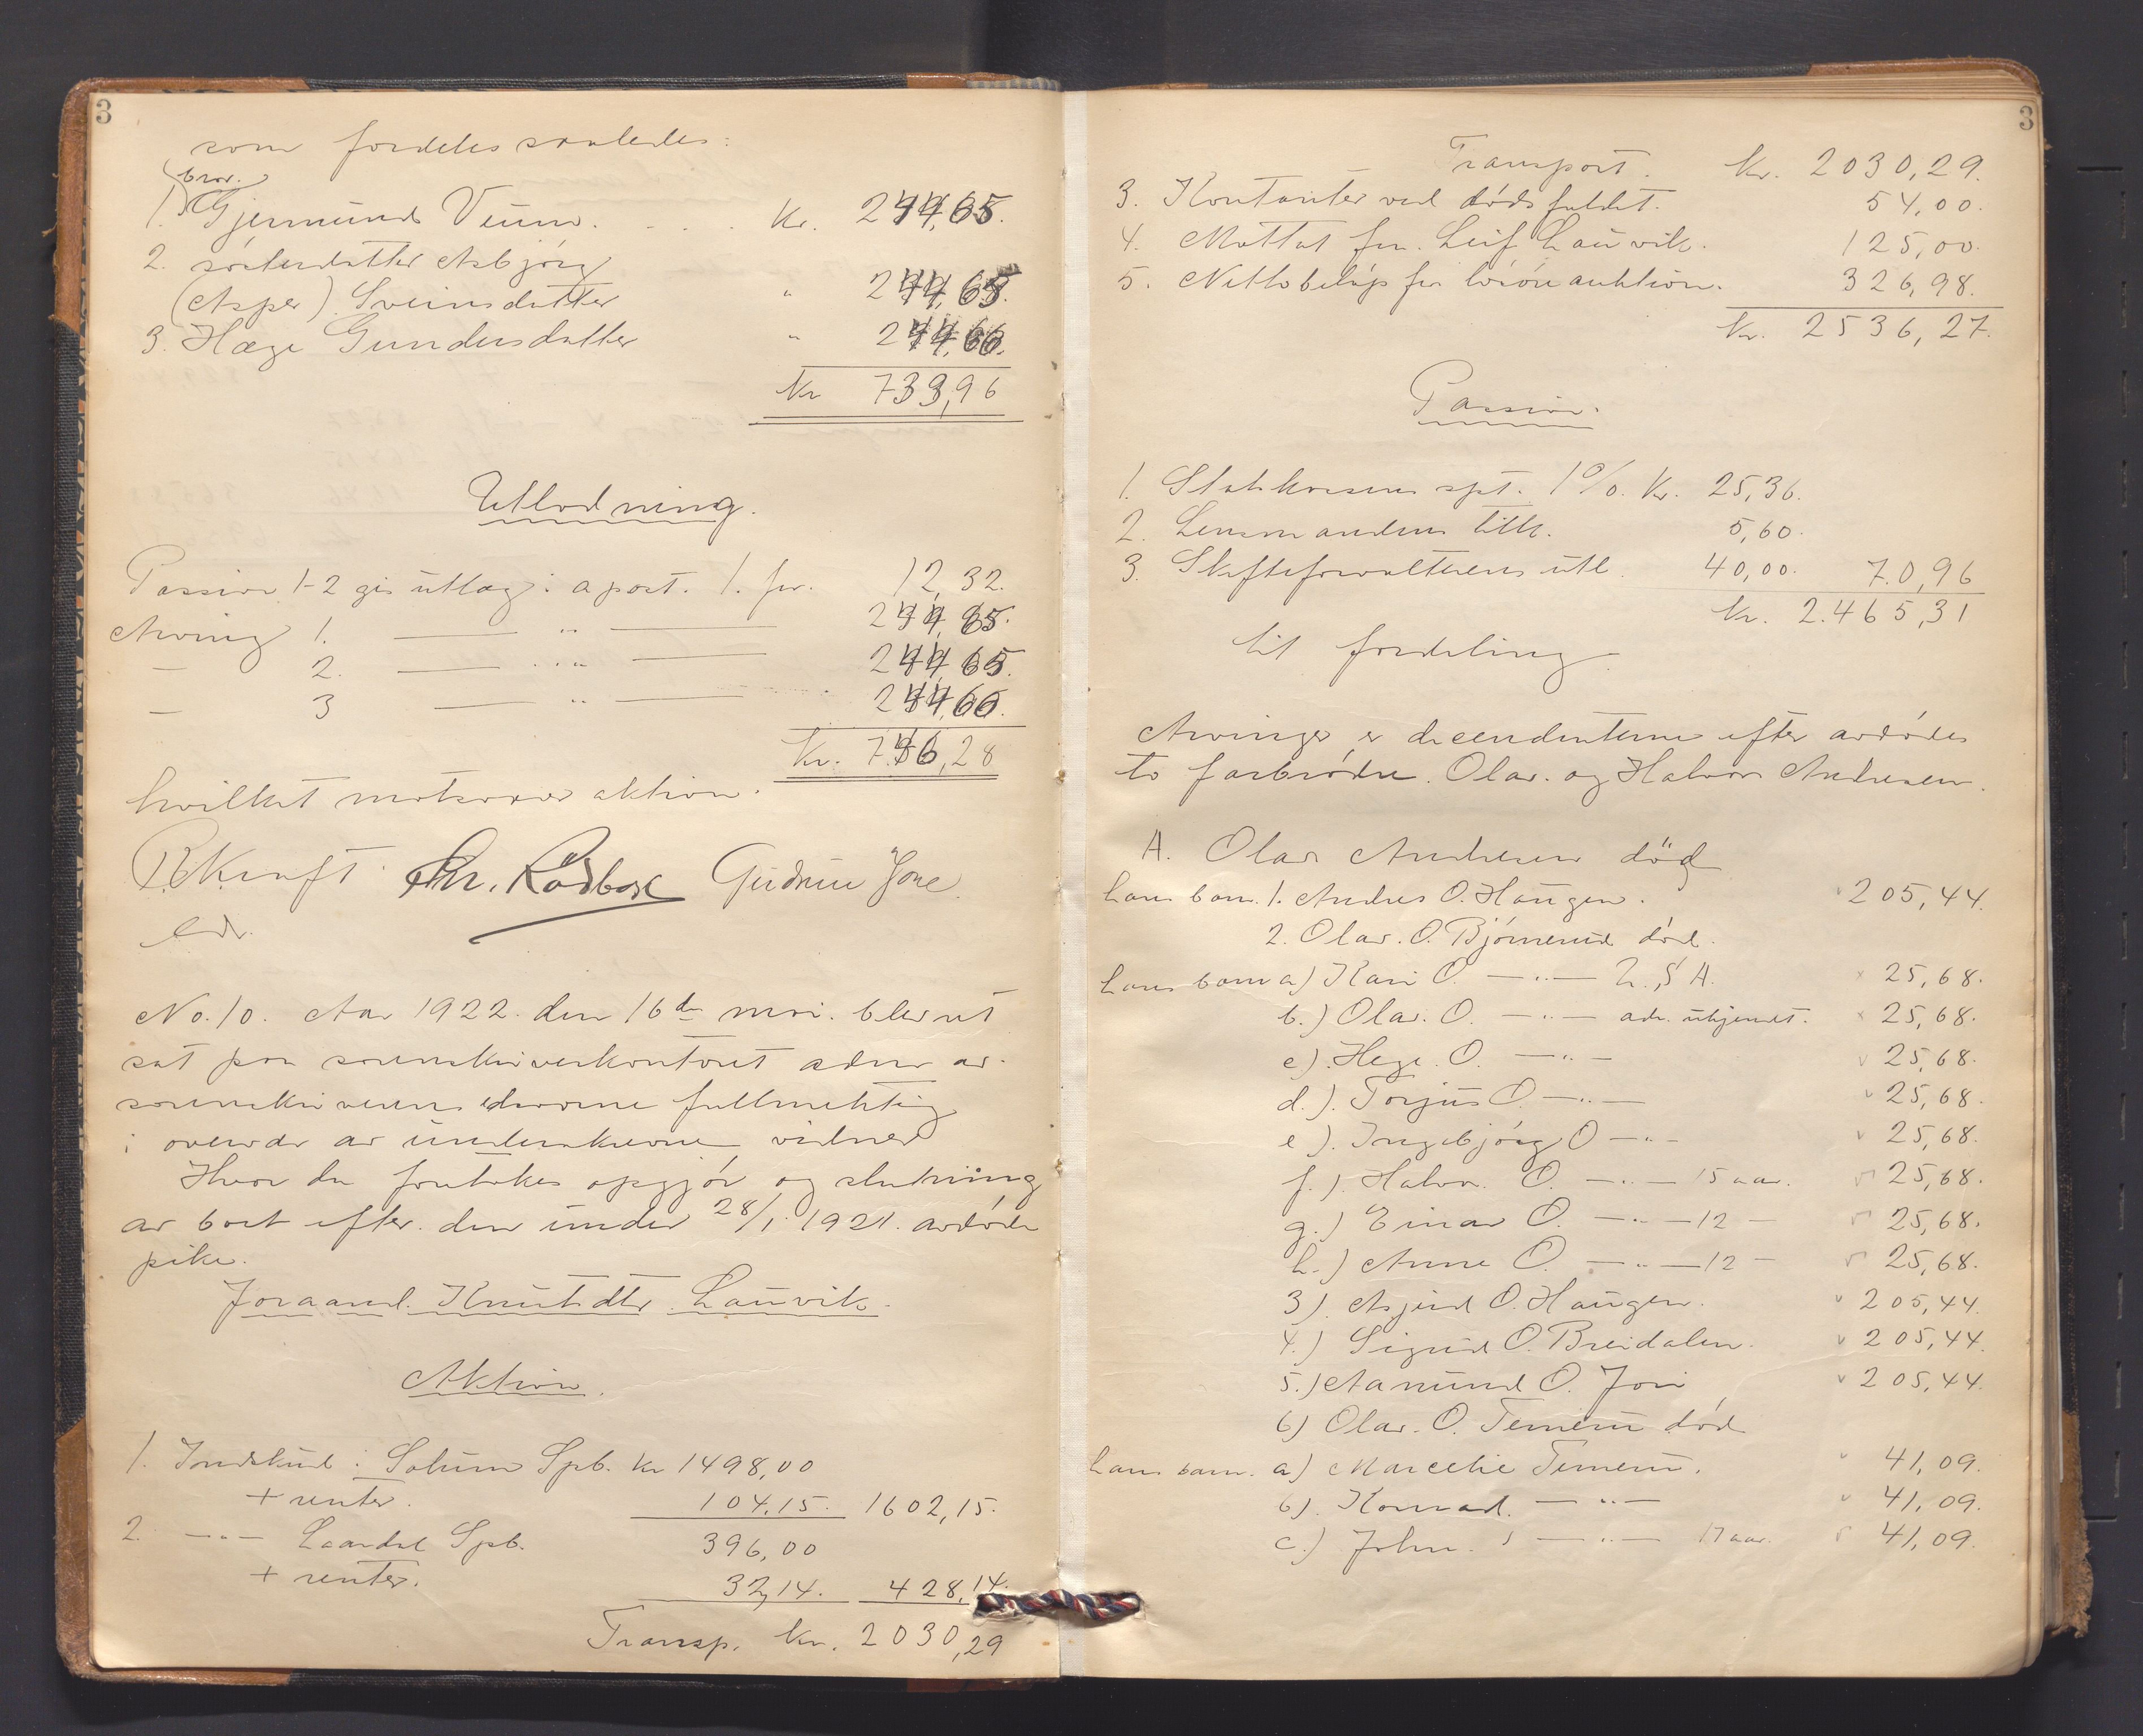 3
som fordeles saaledes:
bror.
1. Gjermund Veum. . . . . Kr. 244,65.
2. søsterdatter Asbjørg
(Asper) Sveinsdatter " 244,65.
3. Hæge Gundersdatter " 244,66.
Kr 733,96
Utlodning.
Passiva 1-2 gis utlæg i a post. 1. for. 12,32.
Arving 1. — " — 244,65.
— 2. — " — 244,65.
— 3 — " — 244,66.
Kr. 746,28
hvilket motsvarer aktiva.
R Kraft Chr. Rødbøl Gudrun Jore
edr.
No. 10. Aar 1922 den 16de mai. blev ret
sat paa sorenskriverkontoret adm av
sorenskriverens edsvorne fuldmektig
i overvær av underskrevne vidner
Hvor da foretokes opgjør og slutning
av boet efter den under 28/1 1921 avdøde
pike.
Joraand Knutsdtr Lauvik.
Aktiva.
1. Indskud i Solum Spb. Kr 1498,00
+ renter. 104,15. 1602,15.
2. — " — Laardal Spb. 396,00
+ renter. 32,14. 428,14.
Transp. Kr. 2030,29
3
Transport. Kr. 2030,29.
3. Kontanter ved dødsfaldet. 54,00.
4. Mottat fra Leif Lauvik. 125,00.
5. Nettobeløp for løsøreauktion. 326,98.
Kr. 2536,27.
Passiva.
1. Statskassens spt. 1%. Kr. 25,36.
2. Lensmandens tilk. 5,60.
3. Skifteforvalterens utl. 40,00. 70,96
Kr. 2.465,31
til fordeling.
Arvinger er decendenterne efter avdødes
to farbrødre. Olav og Halvor Andresen.
A. Olav Andresen død
hans barn. 1. Andres O. Haugen. 205,44.
2. Olav. O. Bjørnerud død.
hans barn a) Kari O. — " — U.S.A. 25,68.
b.) Olav. O. — " — adr. ukjendt. 25,68.
c). Hege. O. — " — 25,68.
d.). Torjus O. — " — 25,68.
e). Ingebjørg O — " — 25,68.
f.). Halvor. O. — " — 15 aar. 25,68.
g.) Einar O. — " — 12 — 25,68.
h.) Anne O. — " — 12 — 25,68.
3). Asjerd O. Haugen. 205,44.
4.) Sigrid O. Breidalen. 205,44.
5.) Aanund O. Jori 205,44.
6) Olav. O. Temeru død
hans barn. a) Marcelie Temeru. 41,09.
b). Konrad. — " — 41,09.
c.) John. — " — 17 aar. 41,09.